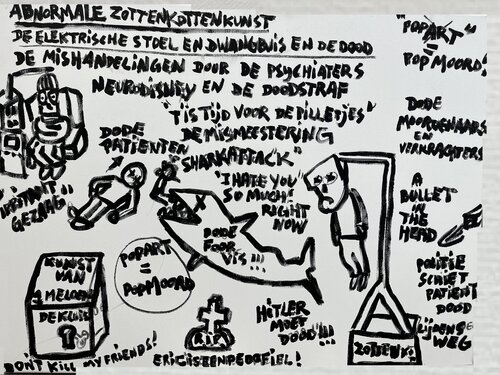 ABNORMALE ZOTTENKOTTENKUNST
DE ELEKTRISCHE STOEL EN DWANGBUIS EN DE DOOD
DE MISHANDELINGEN DOOR DE PSYCHIATERS
NEURODISNEY EN DE DOODSTRAF
"TIS TIJD VOOR DE PILLETJES"
DE MISMEESTERING
"POPART
=
POPMOORD!"
DODE
PATIENTEN
SHARKATTACK"
"I HATE YOU
SO MUCH!
RIGHT
NOW
DODE
MOORDENAARS
EN
VERKRACHTERS
A
BULLET
IN
THE
HEAD
GEZAAG"
DODE
FOOR
VIS!!!
POPART
=
POPMOORD
KUNST
VAN
DE KLUIS
HITLER
MOET
DOOD!!!
POLITIE
SCHIET
PATIENT
DOOD
LIJDENS
WEG
R.I.P
DON'T KILL MY FRIENDS!